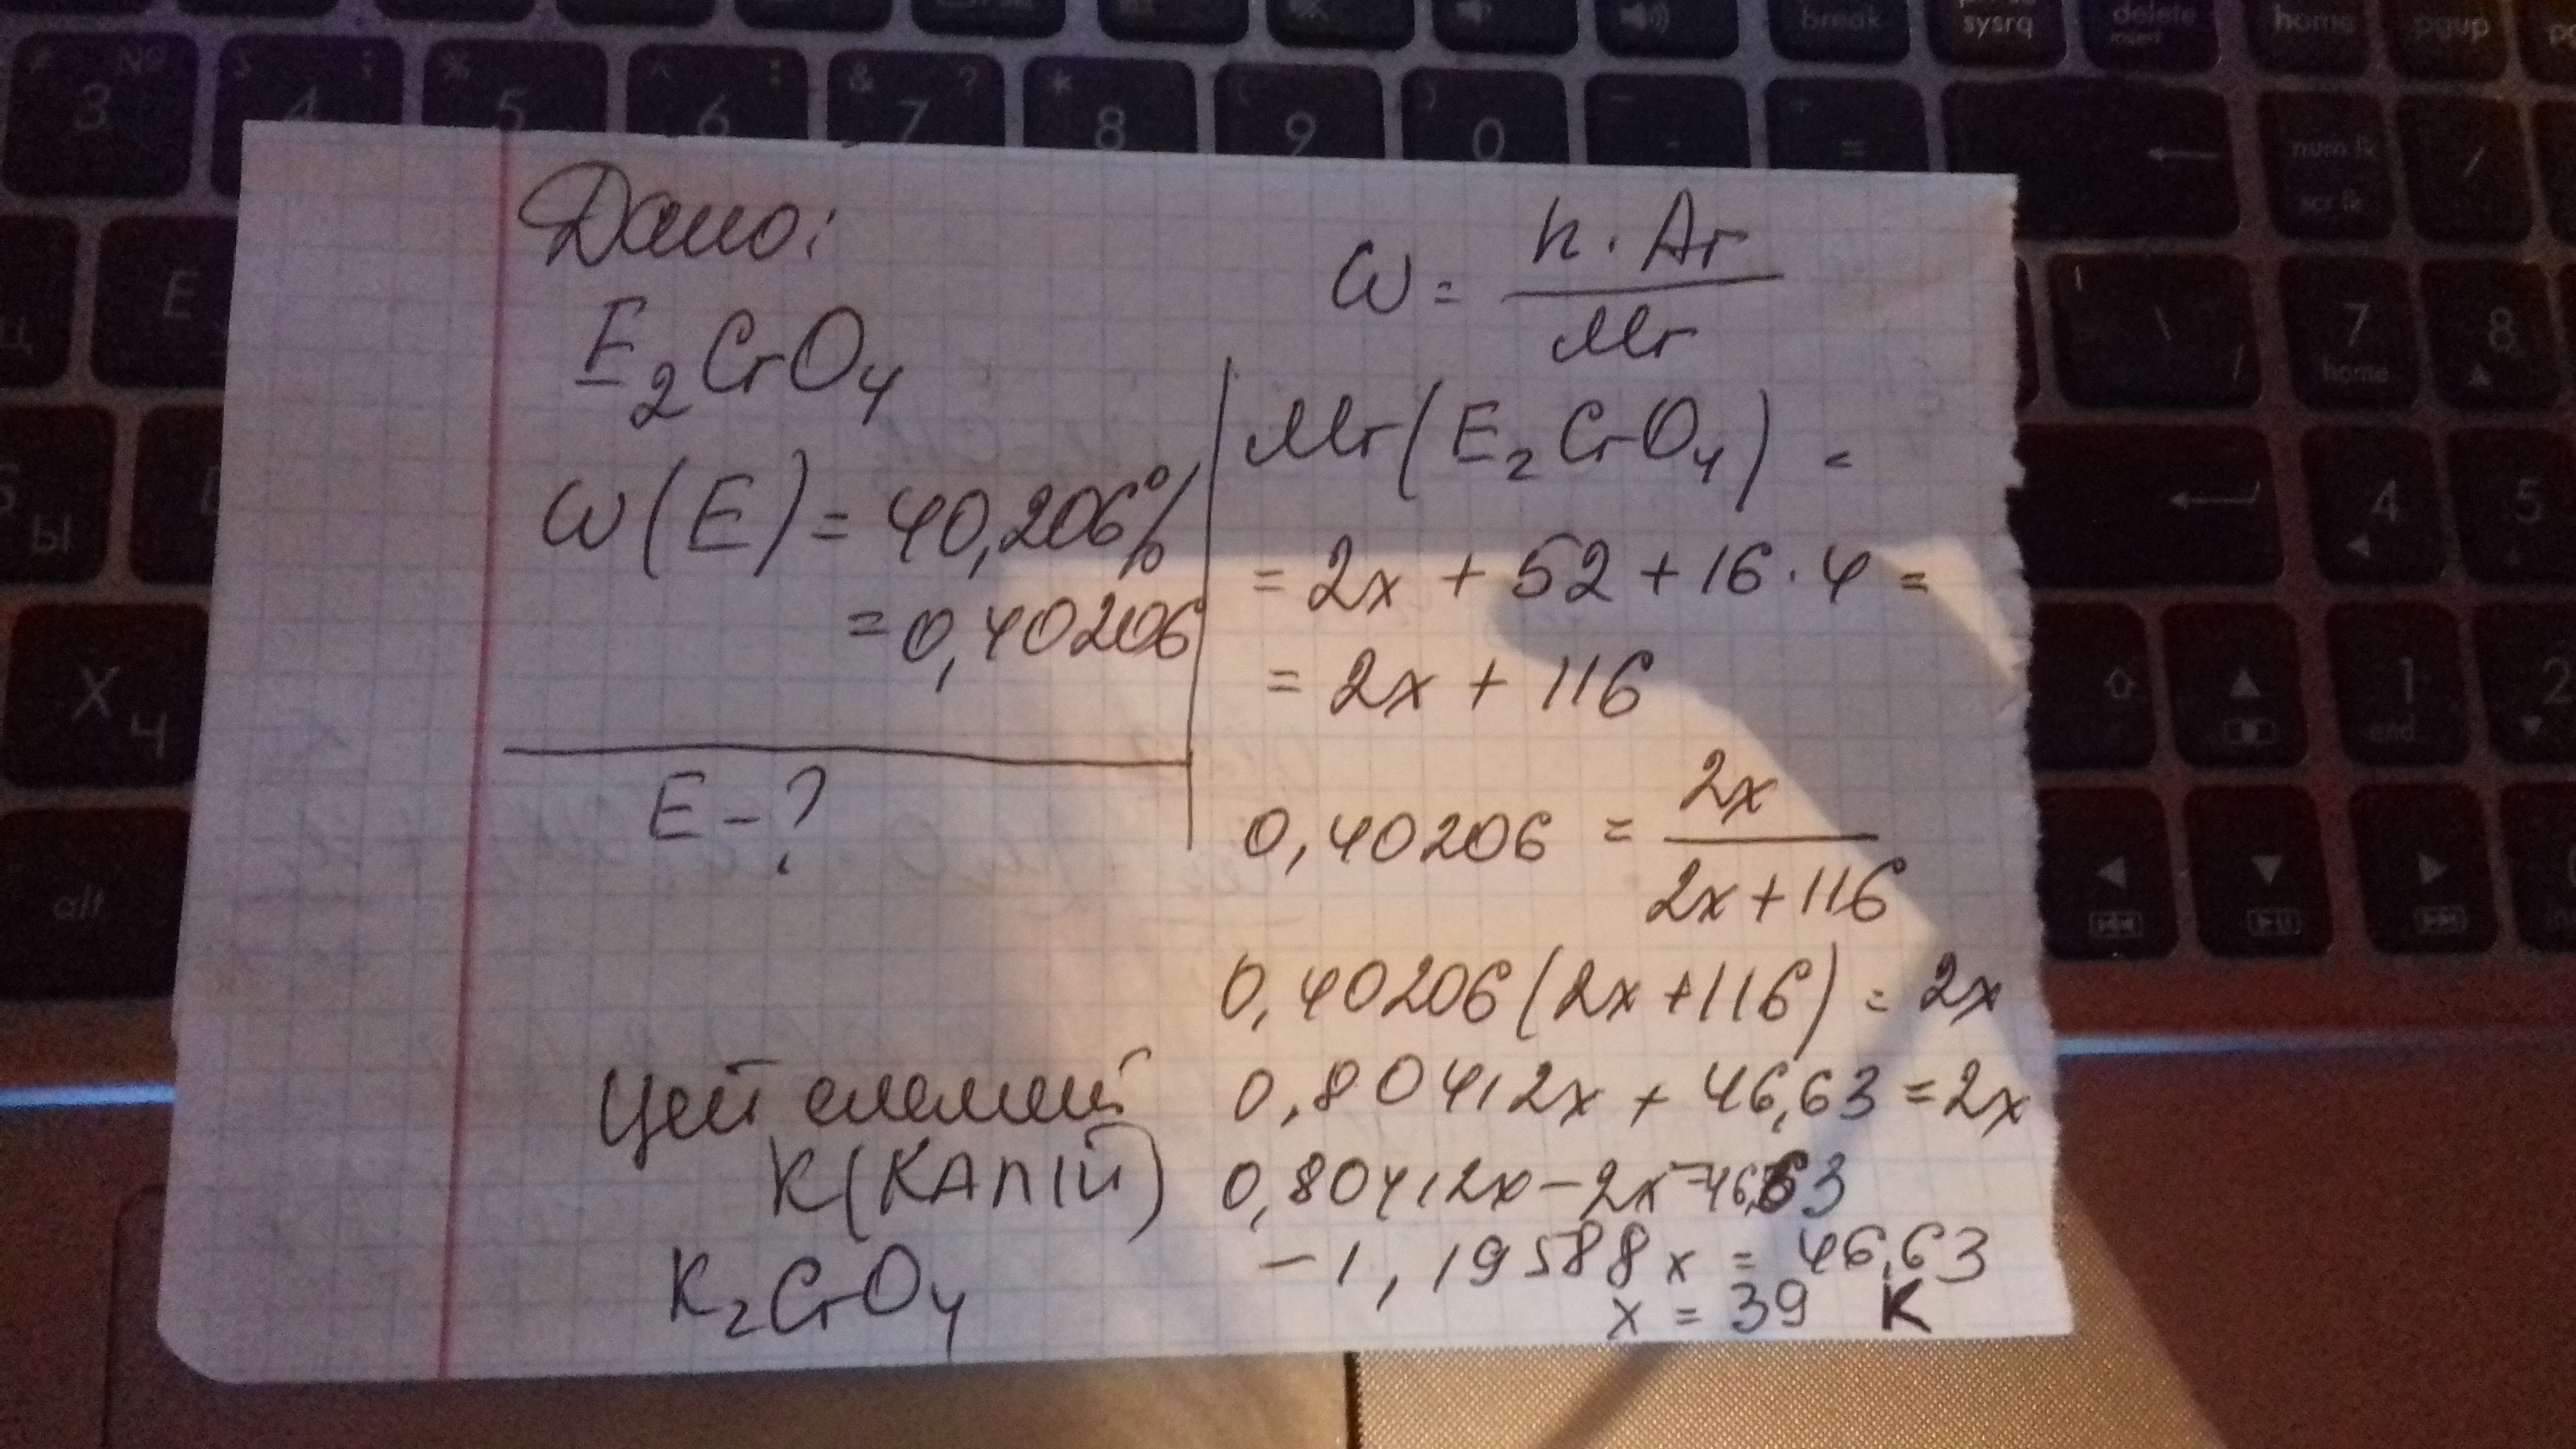 Дано:
E₂CrO₄
ω(E) = 40,206%
= 0,40206
E - ?
ω = n · Ar / Mr
Mr(E₂CrO₄) =
= 2x + 52 + 16 · 4 =
= 2x + 116
0,40206 = 2x / 2x + 116
0,40206(2x + 116) = 2x
0,80412x + 46,63 = 2x
0,80412x - 2x = 46,63
-1,19588x = 46,63
x = 39 K
Цей елемент
K(КАЛІЙ)
K₂CrO₄
break
sysrq
delete
insert
home
pgup
3 №
$ 4 ;
% 5
^ 6 :
& 7 ?
* 8
( 9
) 0
num lk
scr lk
E
7
home
8
Ы
4
5
X Ч
1
end
2
alt